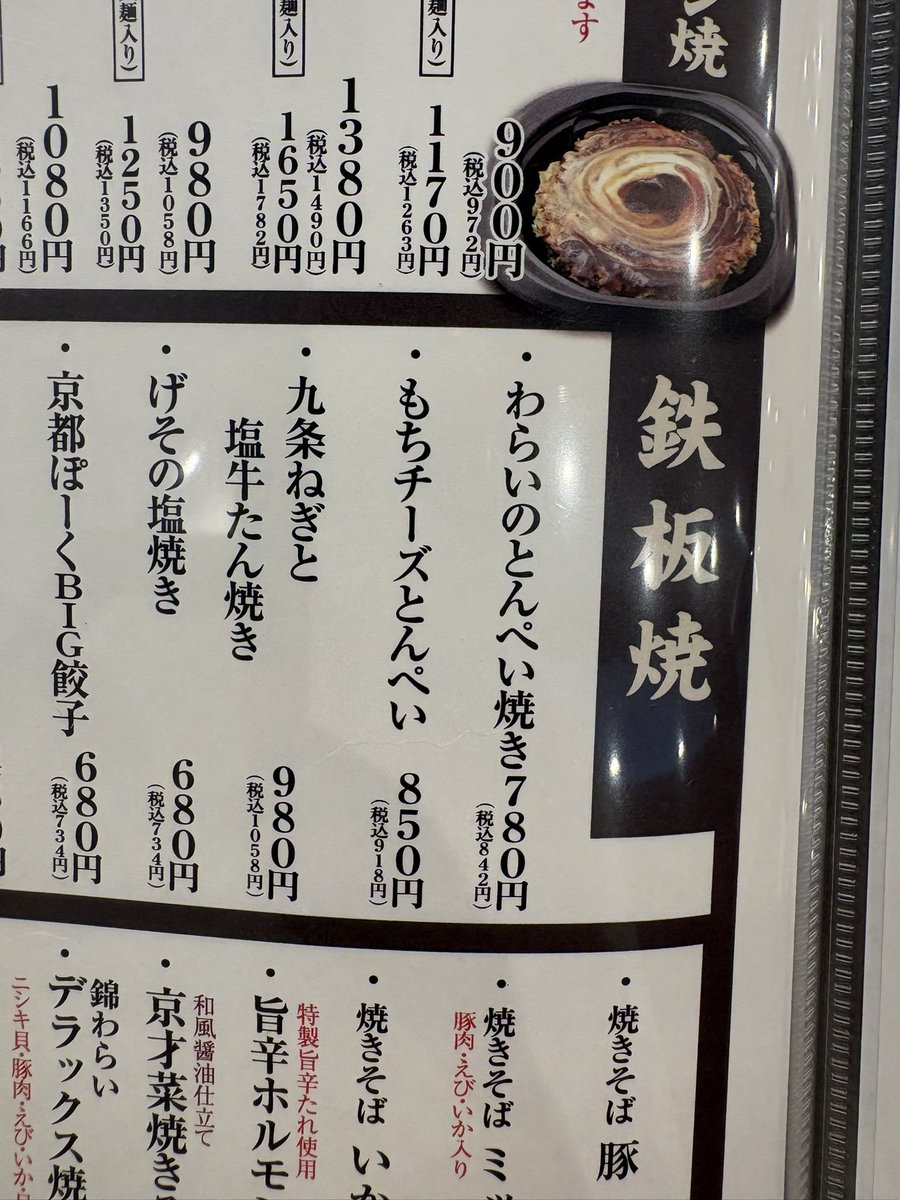 焼
ます
麺入り）
900円
（税込972円）
1170円
（税込1263円）
麺入り）
1380円
（税込1490円）
1650円
（税込1782円）
麺入り）
980円
（税込1058円）
1250円
（税込1350円）
1080円
（税込1166円）
鉄板焼
・わらいのとんぺい焼き780円
（税込842円）
・もちチーズとんぺい 850円
（税込918円）
・九条ねぎと
塩牛たん焼き 980円
（税込1058円）
・げその塩焼き 680円
（税込734円）
・京都ぽーくBIG餃子 680円
（税込734円）
・焼きそば 豚
・焼きそば ミッ
豚肉・えび・いか入り
・焼きそば いか
特製旨辛たれ使用
・旨辛ホルモン
和風醤油仕立て
・京才菜焼きそ
錦わらい
・デラックス焼
ニシキ貝・豚肉・えび・いか